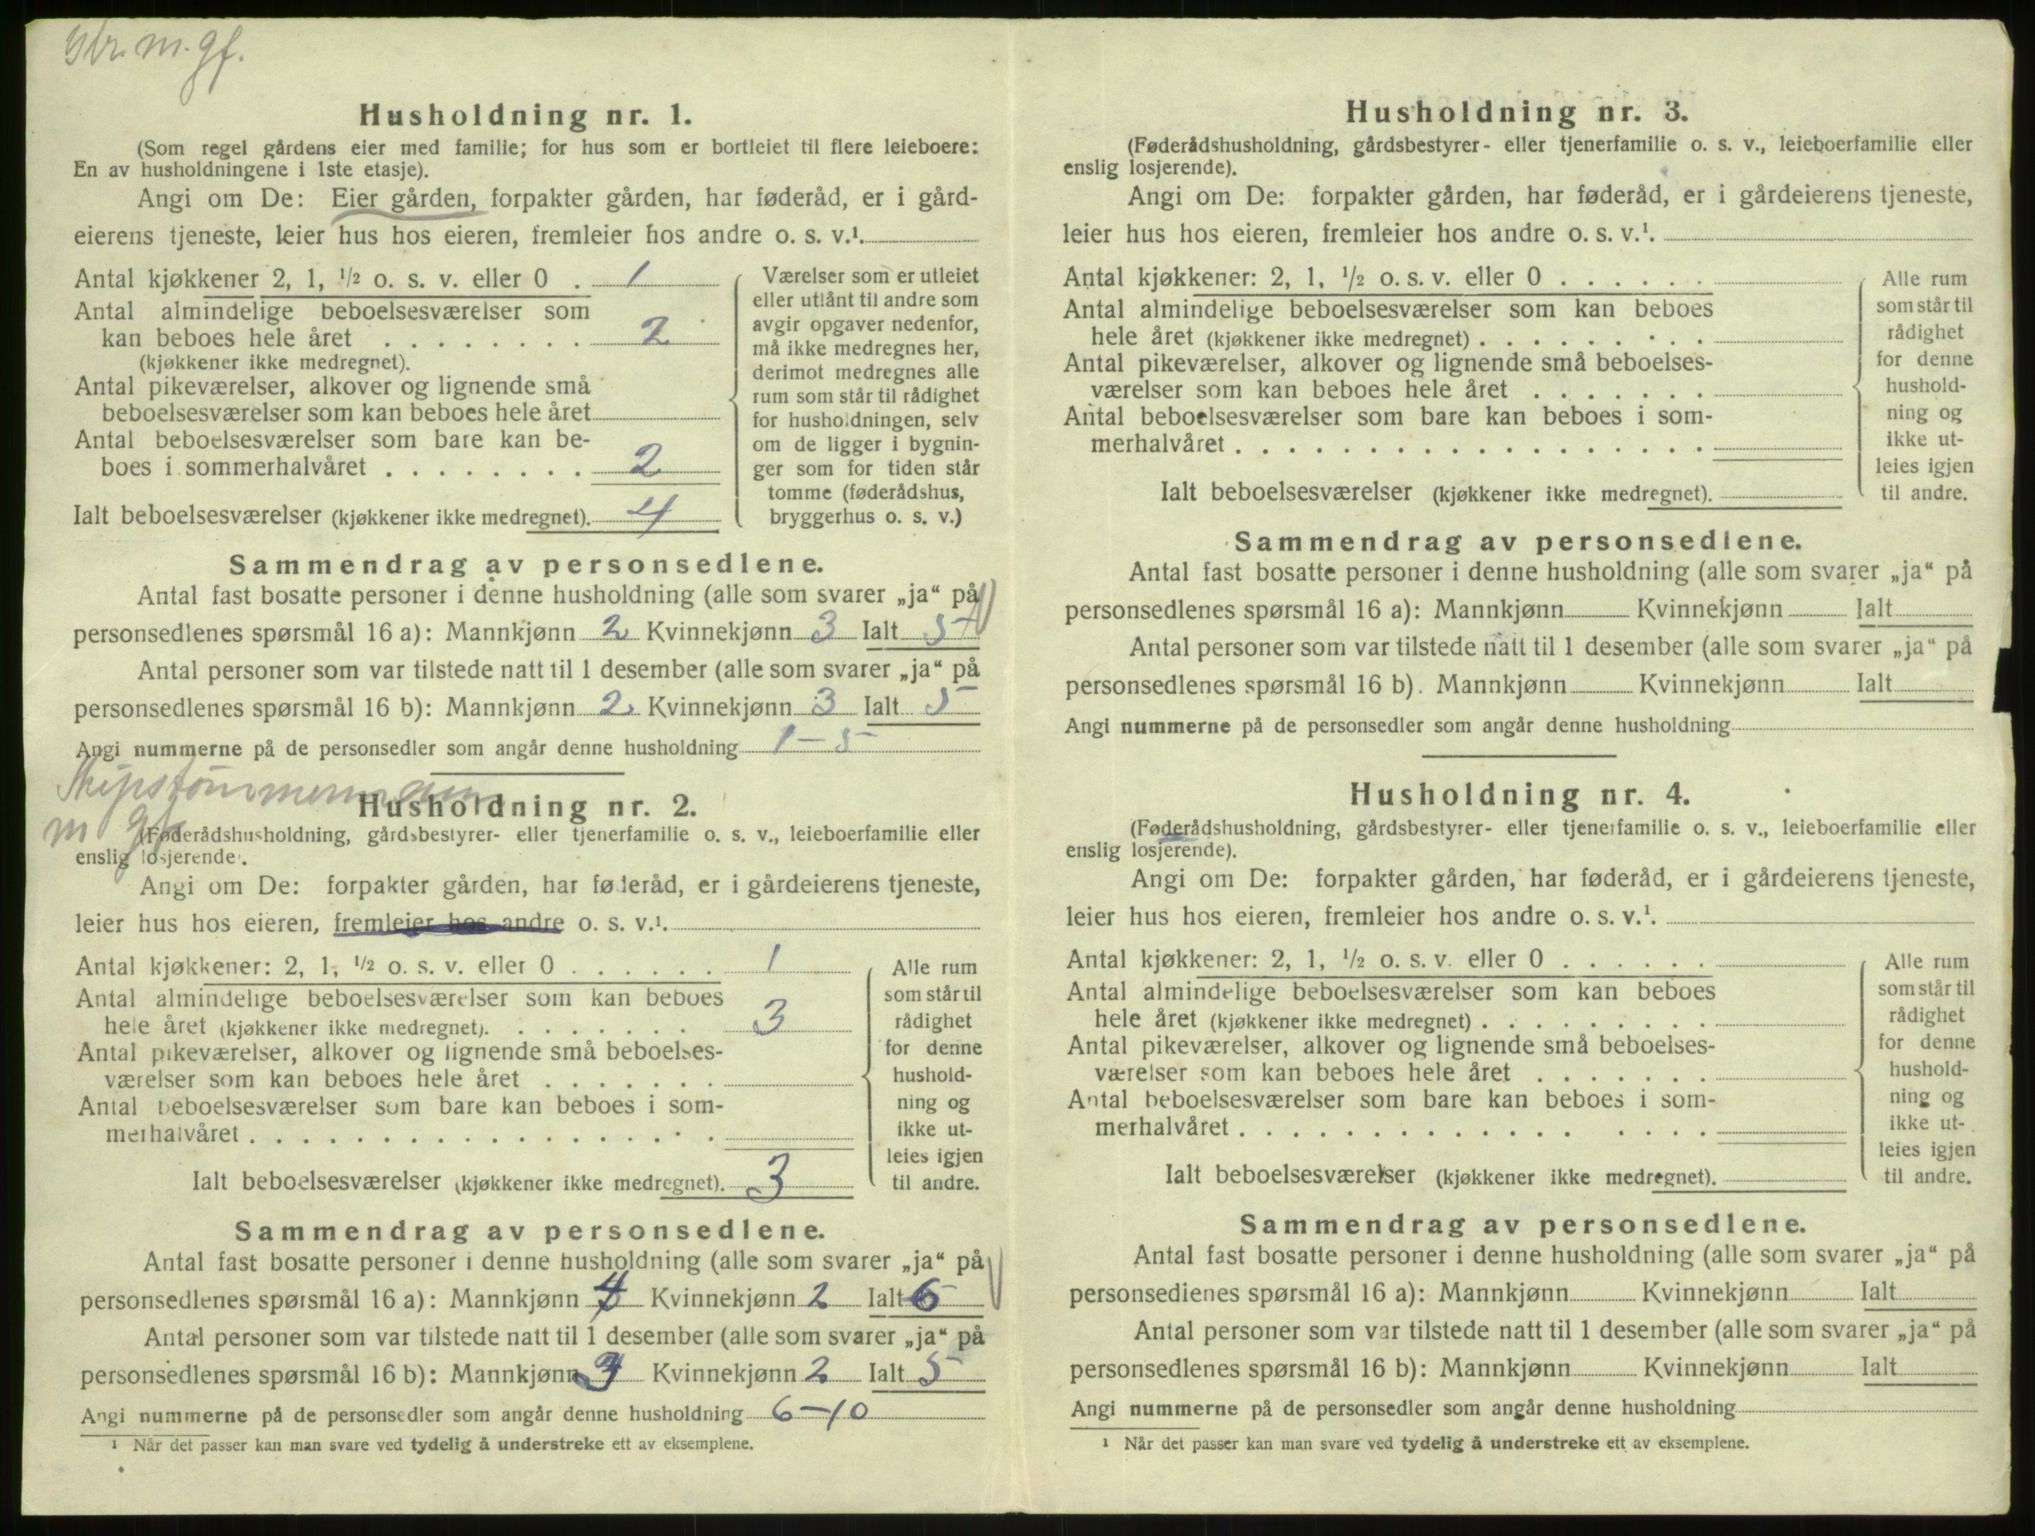 Gbr. m. gf.
Husholdning nr. 1.
(Som regel gårdens eier med familie; for hus som er bortleiet til flere leieboere:
En av husholdningene i 1ste etasje).
Angi om De: Eier gården, forpakter gården, har føderåd, er i gård-
eierens tjeneste, leier hus hos eieren, fremleier hos andre o. s. v.¹.
Antal kjøkkener 2, 1, ½ o. s. v. eller 0 . 1
Antal almindelige beboelsesværelser som
kan beboes hele året . . . . . . . . 2
(kjøkkener ikke medregnet).
Antal pikeværelser, alkover og lignende små
beboelsesværelser som kan beboes hele året
Antal beboelsesværelser som bare kan be-
boes i sommerhalvåret . . . . . . . . 2
Ialt beboelsesværelser (kjøkkener ikke medregnet). 4
Værelser som er utleiet
eller utlånt til andre som
avgir opgaver nedenfor,
må ikke medregnes her,
derimot medregnes alle
rum som står til rådighet
for husholdningen, selv
om de ligger i bygnin-
ger som for tiden står
tomme (føderådshus,
bryggerhus o. s. v.)
Sammendrag av personsedlene.
Antal fast bosatte personer i denne husholdning (alle som svarer „ja“ på
personsedlenes spørsmål 16 a): Mannkjønn 2 Kvinnekjønn 3 Ialt 5
Antal personer som var tilstede natt til 1 desember (alle som svarer „ja“ på
personsedlenes spørsmål 16 b): Mannkjønn 2 Kvinnekjønn 3 Ialt 5
Angi nummerne på de personsedler som angår denne husholdning 1-5
Skipstømmermann
m gf.
Husholdning nr. 2.
(Føderådshusholdning, gårdsbestyrer- eller tjenerfamilie o. s. v., leieboerfamilie eller
enslig losjerende).
Angi om De: forpakter gården, har føderåd, er i gårdeierens tjeneste,
leier hus hos eieren, fremleier hos andre o. s. v.¹.
Antal kjøkkener: 2, 1, ½ o. s. v. eller 0 . . . . . . 1
Antal almindelige beboelsesværelser som kan beboes
hele året (kjøkkener ikke medregnet). . . . . . . . 3
Antal pikeværelser, alkover og lignende små beboelses-
værelser som kan beboes hele året . . . . . . .
Antal beboelsesværelser som bare kan beboes i som-
merhalvåret . . . . . . . . . . . . . . . . .
Ialt beboelsesværelser (kjøkkener ikke medregnet). 3
Alle rum
som står til
rådighet
for denne
hushold-
ning og
ikke ut-
leies igjen
til andre.
Sammendrag av personsedlene.
Antal fast bosatte personer i denne husholdning (alle som svarer „ja“ på
personsedlenes spørsmål 16 a): Mannkjønn 4 Kvinnekjønn 2 Ialt 6
Antal personer som var tilstede natt til 1 desember (alle som svarer „ja“ på
personsedlenes spørsmål 16 b): Mannkjønn 3 Kvinnekjønn 2 Ialt 5
Angi nummerne på de personsedler som angår denne husholdning 6-10
¹ Når det passer kan man svare ved tydelig å understreke ett av eksemplene.
Husholdning nr. 3.
(Føderådshusholdning, gårdsbestyrer- eller tjenerfamilie o. s. v., leieboerfamilie eller
enslig losjerende).
Angi om De: forpakter gården, har føderåd, er i gårdeierens tjeneste,
leier hus hos eieren, fremleier hos andre o. s. v.¹.
Antal kjøkkener: 2, 1, ½ o. s. v. eller 0 . . . . . .
Antal almindelige beboelsesværelser som kan beboes
hele året (kjøkkener ikke medregnet) . . . . . . . . .
Antal pikeværelser, alkover og lignende små beboelses-
værelser som kan beboes hele året . . . . . . .
Antal beboelsesværelser som bare kan beboes i som-
merhalvåret . . . . . . . . . . . . . . . . . .
Ialt beboelsesværelser (kjøkkener ikke medregnet).
Alle rum
som står til
rådighet
for denne
hushold-
ning og
ikke ut-
leies igjen
til andre.
Sammendrag av personsedlene.
Antal fast bosatte personer i denne husholdning (alle som svarer „ja“ på
personsedlenes spørsmål 16 a): Mannkjønn Kvinnekjønn Ialt
Antal personer som var tilstede natt til 1 desember (alle som svarer „ja“ på
personsedlenes spørsmål 16 b). Mannkjønn Kvinnekjønn Ialt
Angi nummerne på de personsedler som angår denne husholdning
Husholdning nr. 4.
(Føderådshusholdning, gårdsbestyrer- eller tjenerfamilie o. s. v., leieboerfamilie eller
enslig losjerende).
Angi om De: forpakter gården, har føderåd, er i gårdeierens tjeneste,
leier hus hos eieren, fremleier hos andre o. s. v.¹.
Antal kjøkkener: 2, 1, ½ o. s. v. eller 0 . . . . . .
Antal almindelige beboelsesværelser som kan beboes
hele året (kjøkkener ikke medregnet) . . . . . . . . .
Antal pikeværelser, alkover og lignende små beboelses-
værelser som kan beboes hele året . . . . . . .
Antal beboelsesværelser som bare kan beboes i som-
merhalvåret . . . . . . . . . . . . . . . . . .
Ialt beboelsesværelser (kjøkkener ikke medregnet).
Alle rum
som står til
rådighet
for denne
hushold-
ning og
ikke ut-
leies igjen
til andre.
Sammendrag av personsedlene.
Antal fast bosatte personer i denne husholdning (alle som svarer „ja“ på
personsedlenes spørsmål 16 a): Mannkjønn Kvinnekjønn Ialt
Antal personer som var tilstede natt til 1 desember (alle som svarer „ja“ på
personsedlenes spørsmål 16 b): Mannkjønn Kvinnekjønn Ialt
Angi nummerne på de personsedler som angår denne husholdning
¹ Når det passer kan man svare ved tydelig å understreke ett av eksemplene.